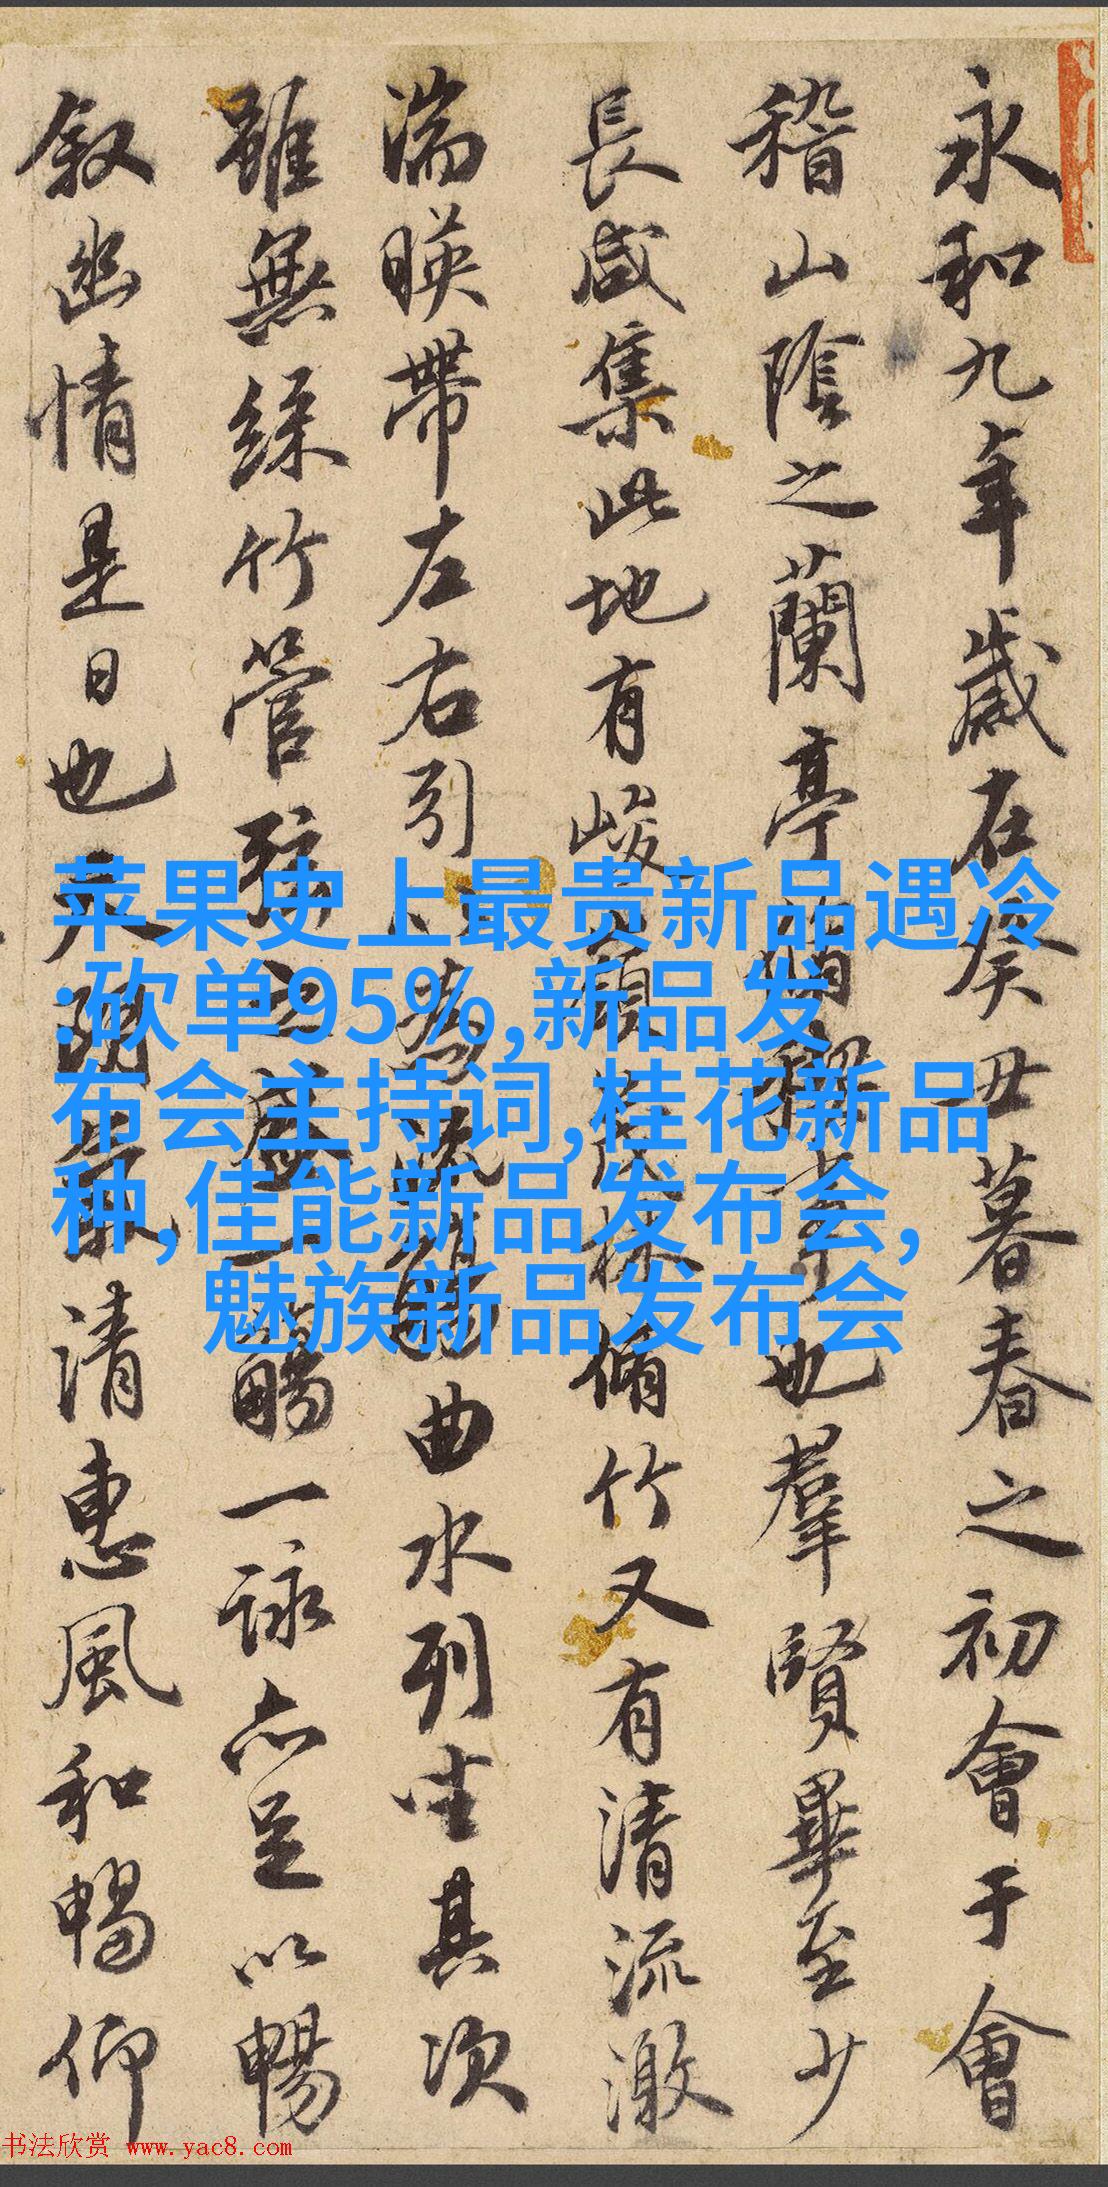 永和九年歲在癸丑暮春之初會于會
稽山陰之蘭亭脩稧事也羣賢畢至少
長咸集此地有峻領茂林脩竹又有清流激
湍暎帶左右引以為流觴曲水列坐其次
雖無絲竹管弦之盛一觴一詠亦足以暢
叙幽情是日也天朗氣清惠風和暢仰
苹果史上最贵新品遇冷
:砍单95%,新品发
布会主持词,桂花新品
种,佳能新品发布会,
魅族新品发布会
书法欣赏 www.yac8.com